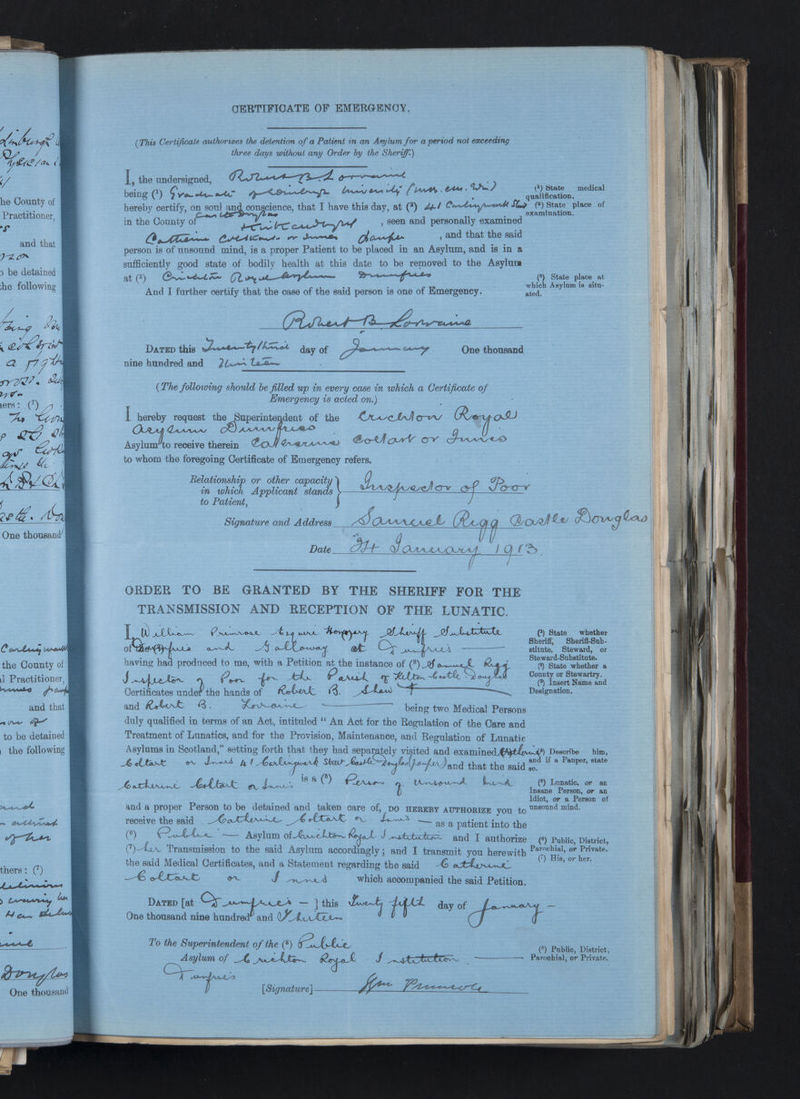 CERTIFICATE OF EMERGENCY.
(This Certificate authorises the detention of a Patient in an Asylum for a period not exceeding
three days without any Order by the Sheriff.)
I, the undersigned, Robert B. Lorraine
being (¹) Graduate of Edinburgh University
hereby certify, on soul and conscience, that I have this day, at (²) 41 Carlingwark Street
Castle Douglas
in the County of Kirkcudbright, seen and personally examined
Catherine Coltart or Innes Pauper, and that the said
person is of unsound mind, is a proper Patient to be placed in an Asylum, and is in a
sufficiently good state of bodily health at this date to be removed to the Asylum
at (³) Crichton Royal Asylum Dumfries
And I further certify that the case of the said person is one of Emergency.
(¹) State medical
qualification.
(²) State place of
examination.
(³) State place at
which Asylum is situ-
ated.
Robert B. Lorraine
DATED this Twenty third day of January One thousand
nine hundred and Thirteen.
(The following should be filled up in every case in which a Certificate of
Emergency is acted on.)
I hereby request the Superintendent of the Crichton Royal
Asylum Dumfries
Asylum to receive therein Catherine Coltart or Innes
to whom the foregoing Certificate of Emergency refers.
Relationship or other capacity
in which Applicant stands
to Patient,
Inspector of Poor
Signature and Address Samuel Rigg Castle Douglas
Date January 1913.
ORDER TO BE GRANTED BY THE SHERIFF FOR THE
TRANSMISSION AND RECEPTION OF THE LUNATIC.
I, William Primrose Esquire Honorary Sheriff Substitute
of Dumfries and Galloway at Dumfries
having had produced to me, with a Petition at the instance of (³) Samuel Rigg
Inspector of Poor for the Parish of Kelton Castle Douglas
Certificates under the hands of Robert B. Shaw
and Robert B. Lorraine being two Medical Persons
duly qualified in terms of an Act, intituled “ An Act for the Regulation of the Care and
Treatment of Lunatics, and for the Provision, Maintenance, and Regulation of Lunatic
Asylums in Scotland,” setting forth that they had separately visited and examined (⁴) Catherine
Coltart or Innes 41 Carlingwark Street Castle Douglas (pauper) and that the said
Catherine Coltart or Innes is a (⁵) Person of unsound mind
and a proper Person to be detained and taken care of, DO HEREBY AUTHORIZE you to
receive the said Catherine Coltart or Innes as a patient into the
(⁶) Public Asylum of Crichton Royal Institution and I authorize
(⁷) her Transmission to the said Asylum accordingly; and I transmit you herewith
the said Medical Certificates, and a Statement regarding the said Catherine
Coltart or Innes which accompanied the said Petition.
(¹) State whether
Sheriff, Sheriff-Sub-
stitute, Steward, or
Steward-Substitute.
(²) State whether a
County or Stewartry.
(³) Insert Name and
Designation.
(⁴) Describe him,
and if a Pauper, state
so.
(⁵) Lunatic, or an
Insane Person, or an
Idiot, or a Person of
unsound mind.
(⁶) Public, District,
Parochial, or Private.
(⁷) His, or her.
DATED [at Dumfries ] this Twenty fifth day of January
One thousand nine hundred and Thirteen
To the Superintendent of the (⁸) Public
Asylum of Crichton Royal Institution.
Dumfries
(⁸) Public, District,
Parochial, or Private.
[Signature] Wm Primrose
the County of
Practitioner,
and that
be detained
the following
One thousand
the County of
l Practitioner,
and that
to be detained
the following
thers: (²)
Douglas
One thousand